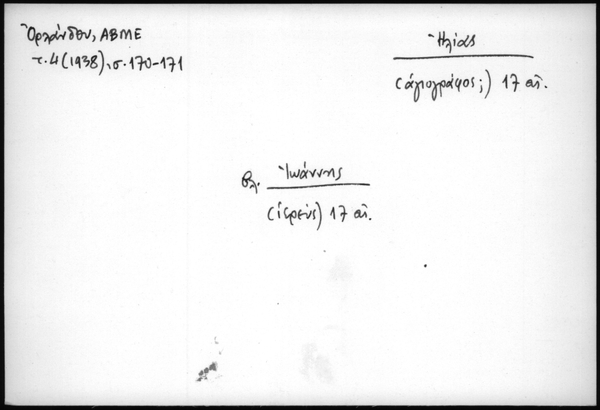 Ὀρλάνδου, ΑΒΜΕ
τ. 4 (1938), σ. 170-171
Ἠλίας
(ἁγιογράφος;) 17 αἰ.
βλ. Ἰωάννης
(ἱερεύς) 17 αἰ.